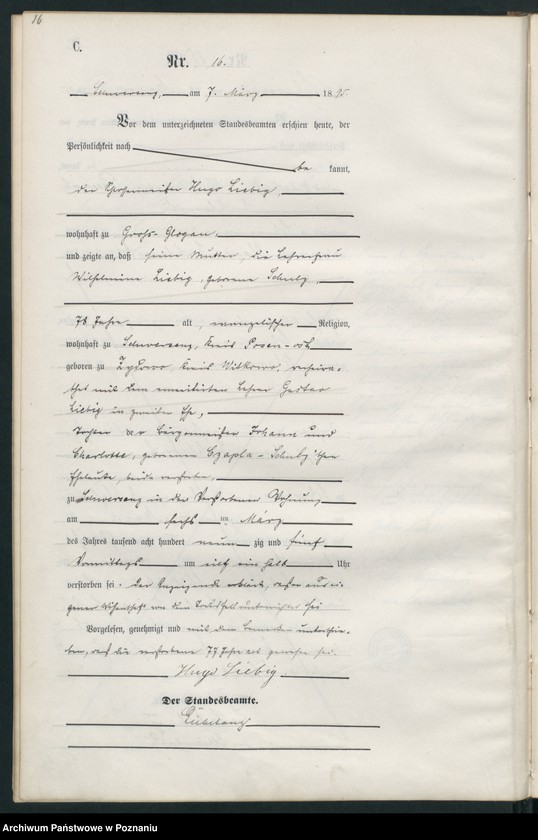 16
C.
Nr. 16.
Schwersenz, am 7. März 1895
Vor dem unterzeichneten Standesbeamten erschien heute, der
Persönlichkeit nach
be kannt,
der Hugo Liebig,
wohnhaft zu Groß-Glogau,
und zeigte an, daß seine Mutter, die Lehrerfrau
Wilhelmine Liebig, geborene Schulz,
78 Jahre alt, evangelischer Religion,
wohnhaft zu Schwersenz, Kreis Posen-Ost
geboren zu Kreis Witkowo, verheira-
thet mit dem emeritirten Lehrer Gustav
Liebig in zweiter Ehe,
Tochter der Bürgermeister Johann und
Charlotte, geborenen Czapla-Schulz'schen
Eheleute, beide verstorben,
zu Schwersenz in der Verstorbenen Wohnung
am sechs ten März
des Jahres tausend acht hundert neun zig und fünf
Vormittags um elf ein halb Uhr
verstorben sei. Der Anzeigende erklärt, daß er aus ei-
gener Wissenschaft von dem Todesfall unterrichtet sei
Vorgelesen, genehmigt und mit dem Bemerken unterschrie-
ben, daß die Verstorbene 77 Jahre alt gewesen sei.
Hugo Liebig.
Der Standesbeamte.
Archiwum Państwowe w Poznaniu